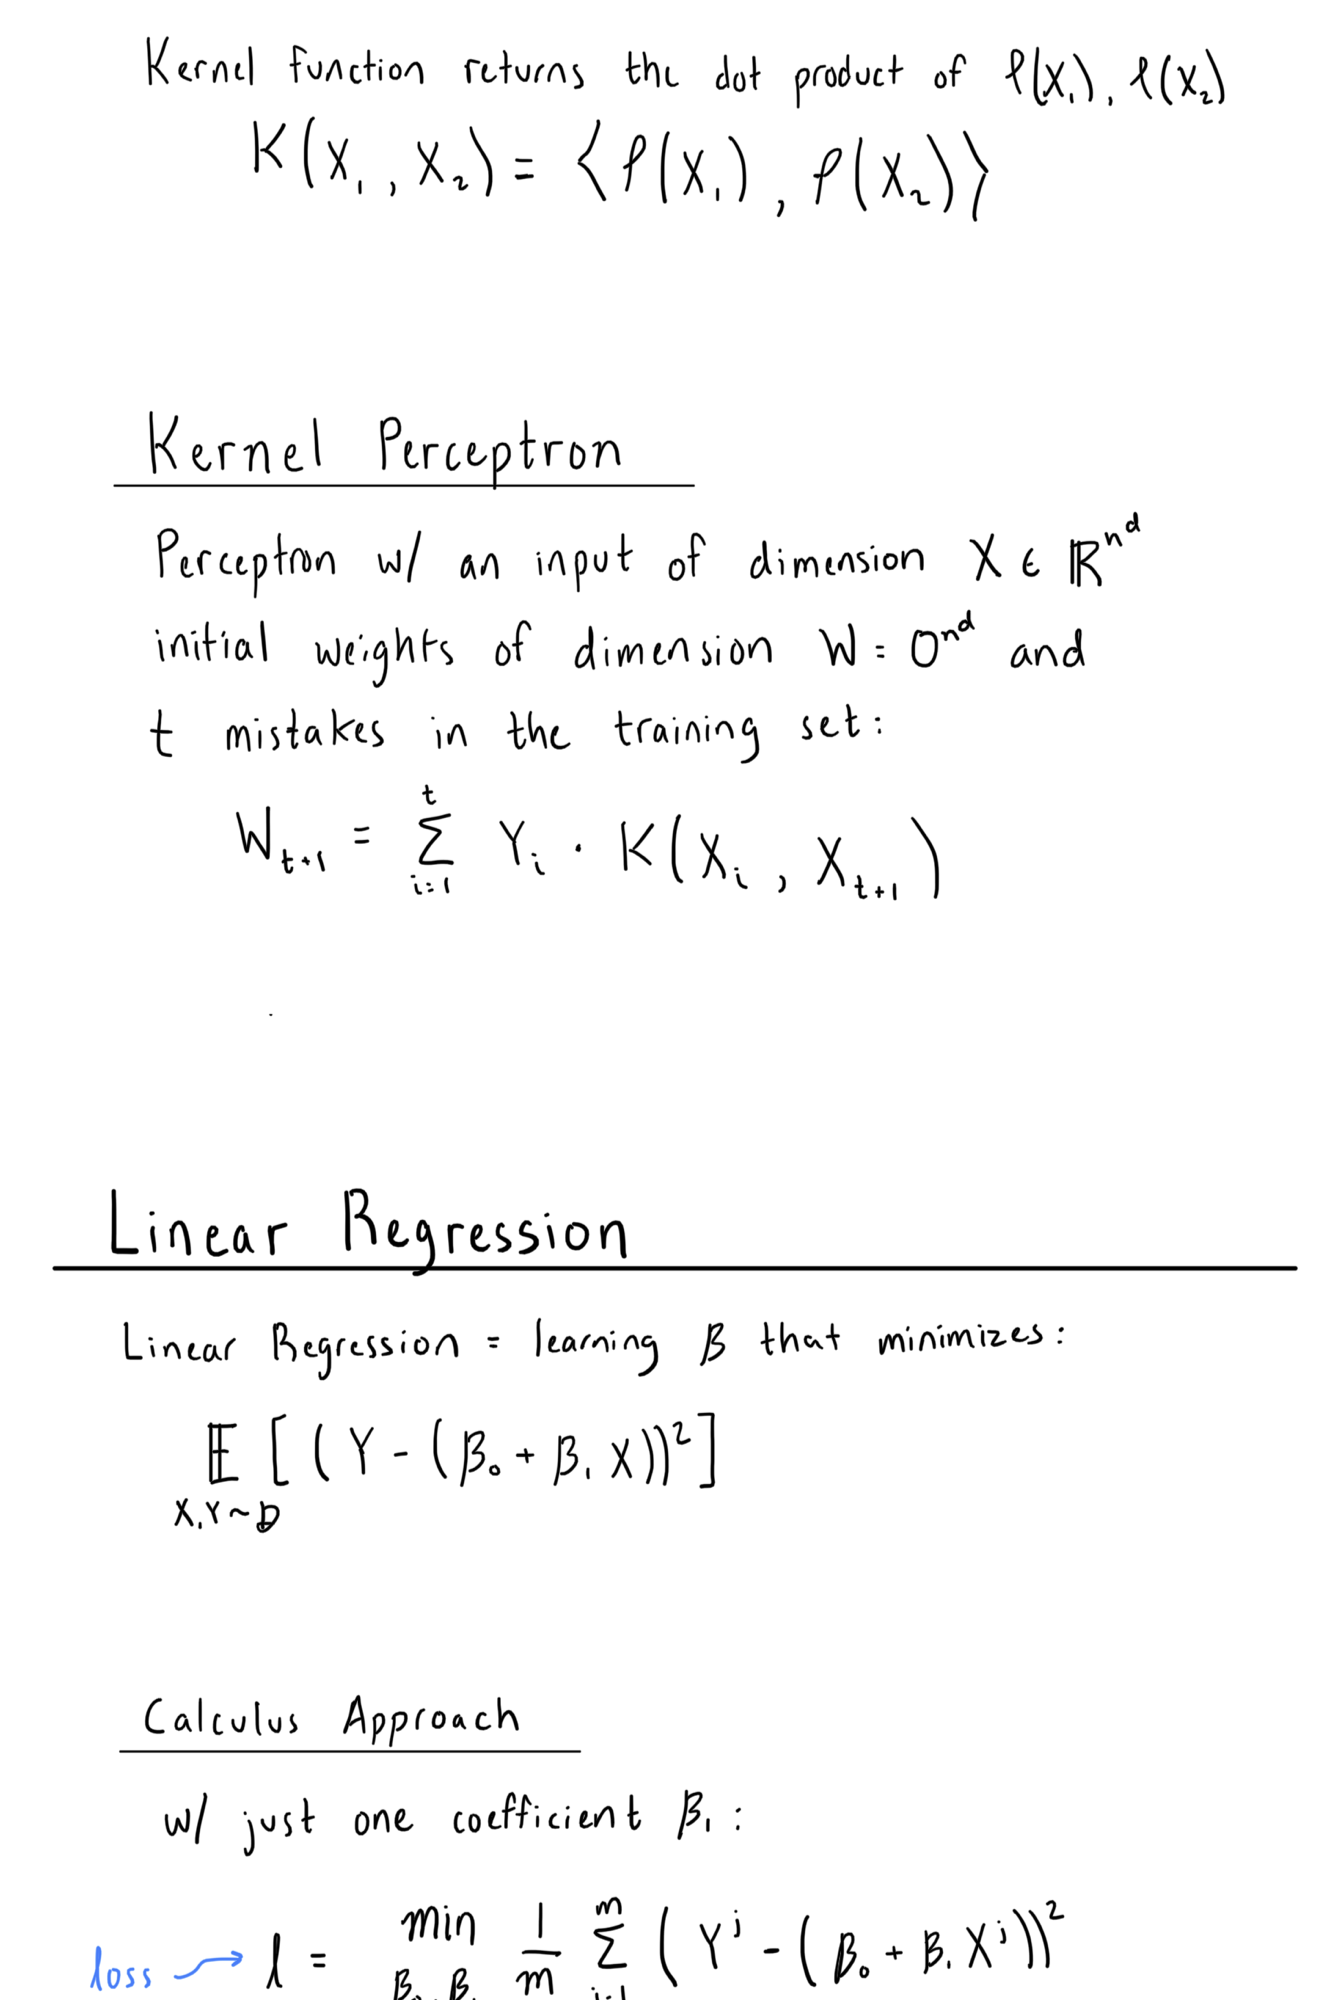 Kernel function returns the dot product of φ(X₁), φ(X₂)
K(X₁, X₂) = ⟨φ(X₁), φ(X₂)⟩
Kernel Perceptron
Perceptron w/ an input of dimension X ∈ ℝ^n^d
initial weights of dimension W = 0^n^d and
t mistakes in the training set:
W_{t+1} = Σ_{i=1}^{t} Y_i · K(X_i, X_{t+1})
Linear Regression
Linear Regression = learning β that minimizes:
𝔼_{X,Y~D} [(Y - (β₀ + β₁ X))²]
Calculus Approach
w/ just one coefficient β₁:
loss → l = min_{β₀, β₁} 1/m Σ_{j=1}^{m} (Y^j - (β₀ + β₁ X^j))²